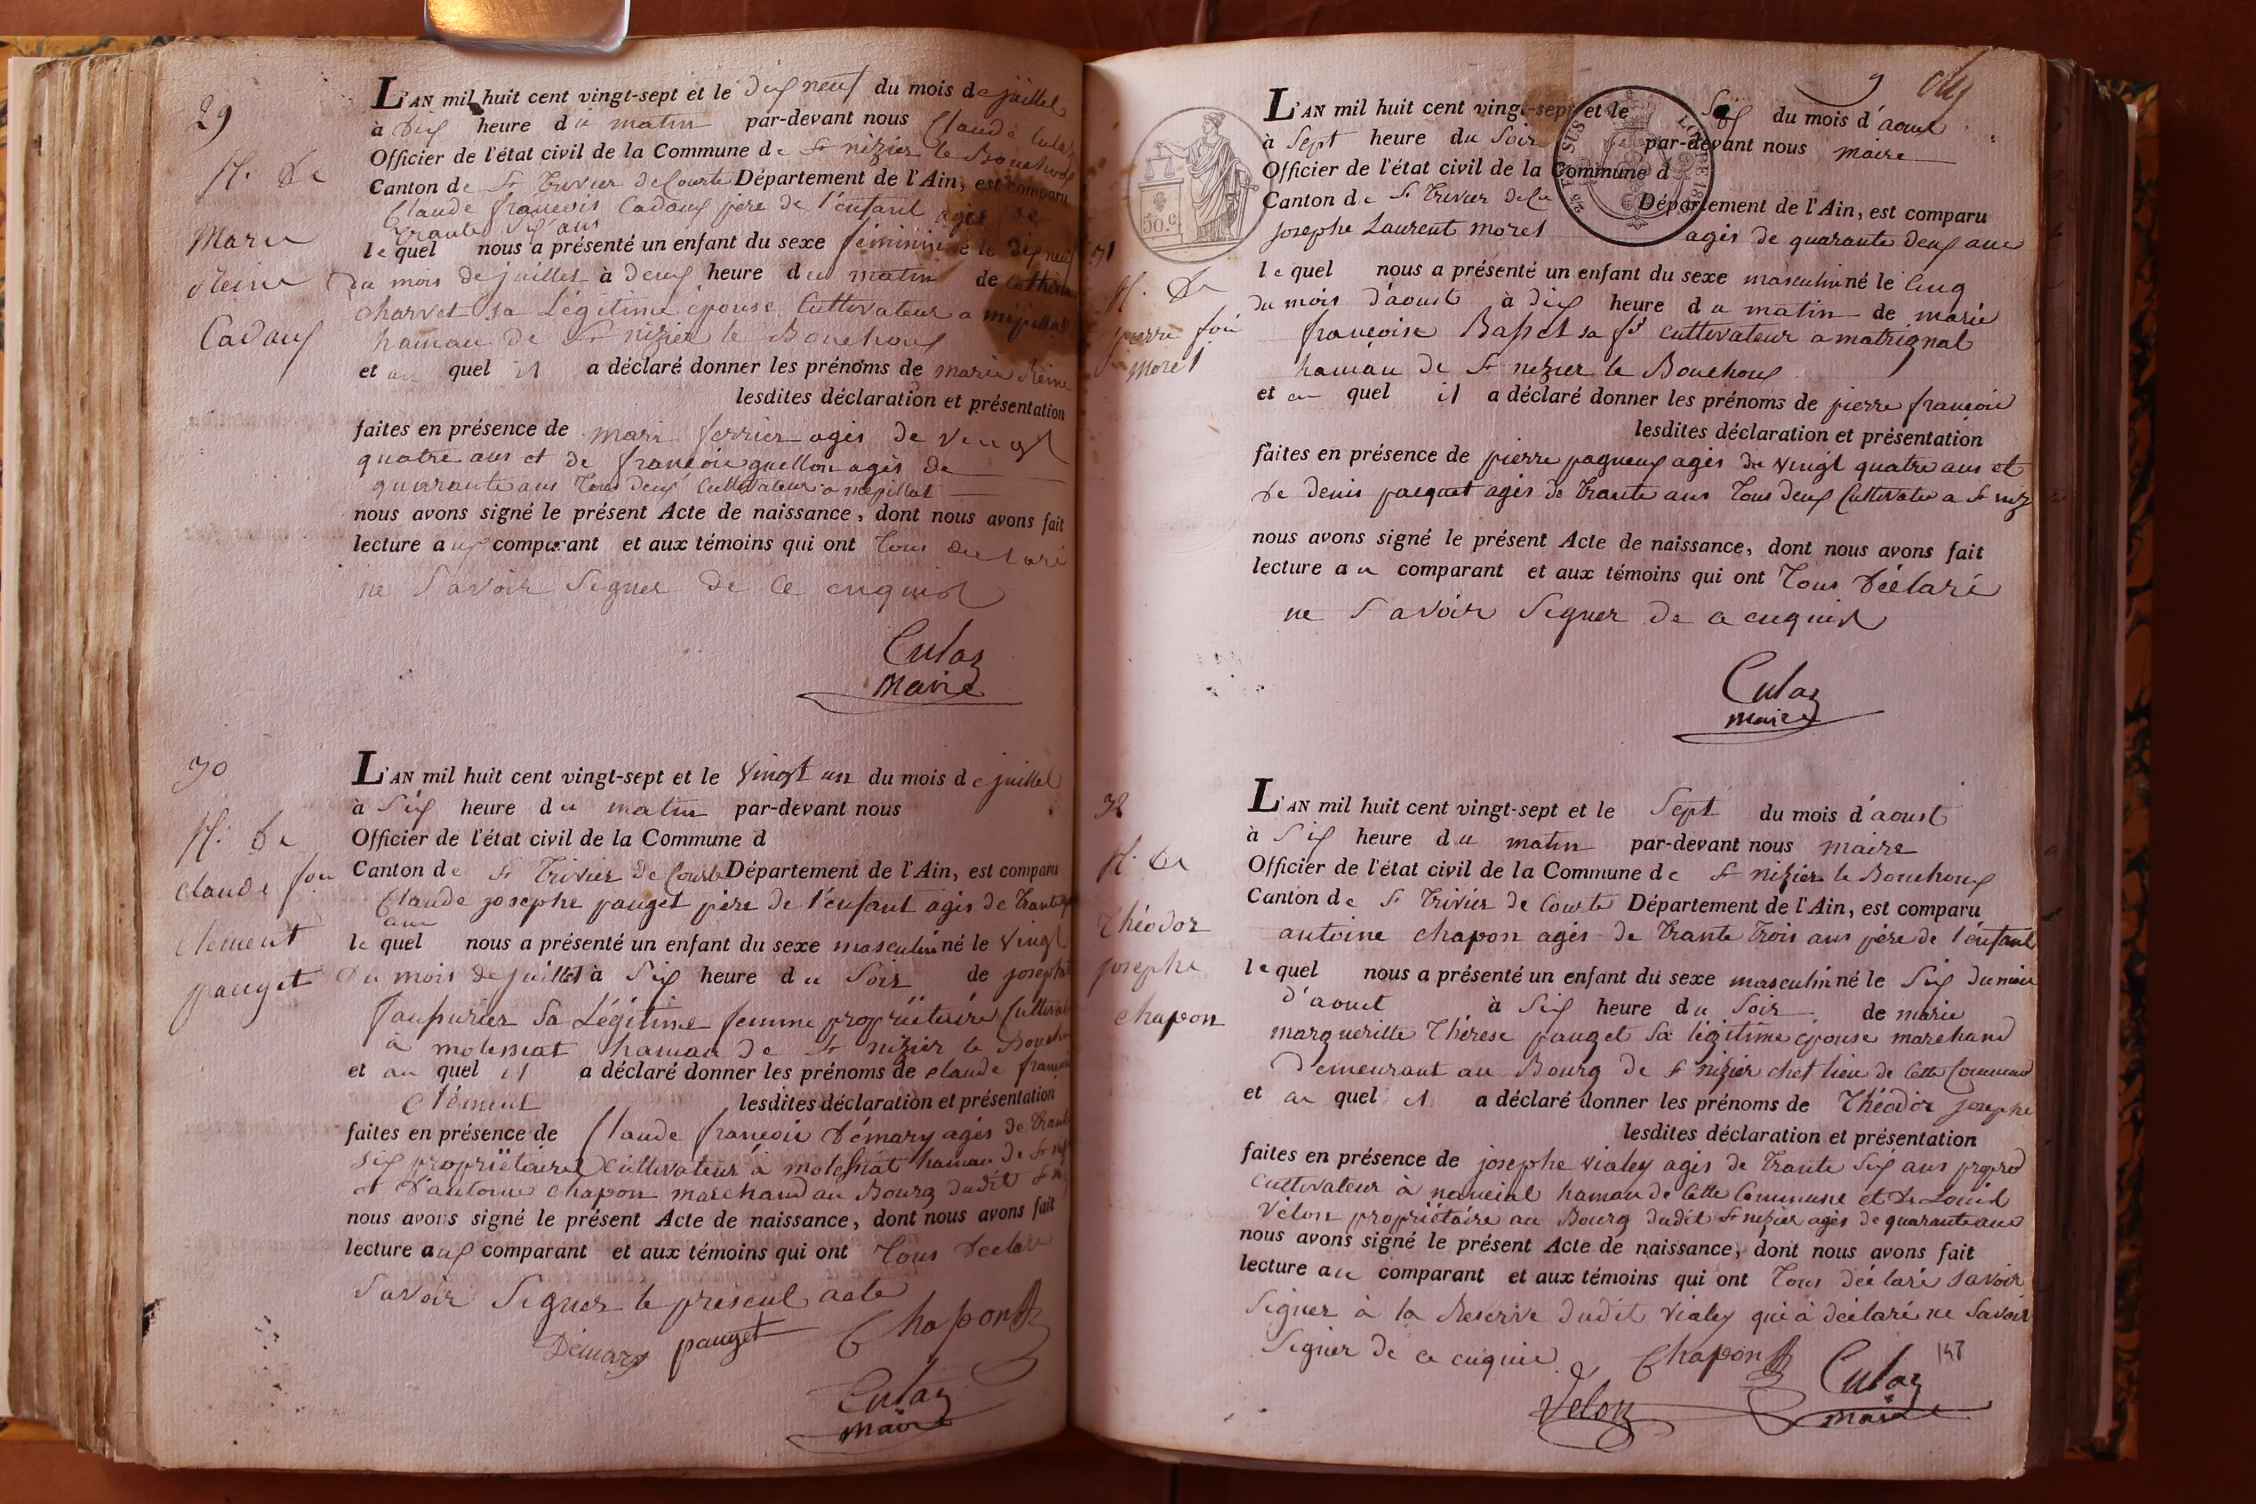 29
N. de
Marie
Reine
Cadoux
L'AN mil huit cent vingt-sept et le dix neuf du mois de juillet
à dix heure du matin par-devant nous Claude Culaz
Officier de l'état civil de la Commune de St nizier le Bouchoux
Canton de St Trivier de Courte Département de l'Ain, est comparu
Claude francois Cadoux pere de l'enfant agés de
trante six ans
lequel nous a présenté un enfant du sexe féminin né le dix neuf
du mois de juillet à deux heure du matin de Catherine
Charvet sa Légitime épouse Cultivateur a mépillat
hamau de St nizier le Bouchoux
et au quel il a déclaré donner les prénoms de marie Reine
lesdites déclaration et présentation
faites en présence de mari ferrier agés de vingt
quatre ans et de francois guillon agés de
quarrante ans Tous deux Cultivateur a mépillat
nous avons signé le présent Acte de naissance, dont nous avons fait
lecture aux comparant et aux témoins qui ont Tous declaré
ne Savoir Signer de ce enquiot
Culaz
Maire
30
N. de
Claude fois
Clément
pauget
L'AN mil huit cent vingt-sept et le vingt un du mois de juillet
à Six heure du matin par-devant nous
Officier de l'état civil de la Commune d
Canton de St Trivier de Courte Département de l'Ain, est comparu
Claude josephe pauget père de l'enfant agés de trante
ans
lequel nous a présenté un enfant du sexe masculin né le vingt
du mois de juillet à Six heure du Soir de josephte
Sa Légitime femme propriétaire Cultivateur
à molemat hamau de St nizier le Bouchoux
et au quel il a déclaré donner les prénoms de claude françois
Clément lesdites déclaration et présentation
faites en présence de Claude françois Démary agés de trante
six propriétaire Cultivateur à molemat hamau de St niz
et d'antoine chapon marchand au Bourg dudit St niz
nous avons signé le présent Acte de naissance, dont nous avons fait
lecture aux comparant et aux témoins qui ont Tous declaré
Savoir Signer le présent acte
Démary pauget Chapon
Culaz
maire
9
50 c.
31
N. de
pierre fois
morel
L'AN mil huit cent vingt-sept et le Six du mois d'aout
à Sept heure du Soir par-devant nous maire
Officier de l'état civil de la Commune d
Canton de St Trivier de Ce Département de l'Ain, est comparu
josephe Laurent morel agés de quarante deux ans
lequel nous a présenté un enfant du sexe masculin né le Cinq
du mois d'aoust à dix heure du matin de marie
françoise Basset sa fe cultivateur a matrignat
hamau de St nizier le Bouchoux
et au quel il a déclaré donner les prénoms de pierre françois
lesdites déclaration et présentation
faites en présence de pierre pagneux agés de vingt quatre ans et
de denis pacquet agés de trante ans Tous deux Cultivateur a St niz
nous avons signé le présent Acte de naissance, dont nous avons fait
lecture au comparant et aux témoins qui ont Tous Déclaré
ne Savoir Signer de ce enquis
Culaz
maire
32
N. de
Théodor
josephe
chapon
L'AN mil huit cent vingt-sept et le Sept du mois d'aoust
à Six heure du matin par-devant nous maire
Officier de l'état civil de la Commune de St nizier le Bouchoux
Canton de St Trivier de Courte Département de l'Ain, est comparu
antoine chapon agés de trante trois ans père de l'enfant
lequel nous a présenté un enfant du sexe masculin né le Six du mois
d'aout à Six heure du Soir de marie
margueritte Thérese pauget Sa légitime épouse marchand
Demeurant au Bourg de St nizier chef lieu de Cette Commune
et au quel il a déclaré donner les prénoms de Théodor josephe
lesdites déclaration et présentation
faites en présence de josephe vialey agés de trante Six ans propred
Cultivateur à nancial hamau de Cette Commune et de Louis
Vélon propriétaire au Bourg dudit St nizier agés de quarante ans
nous avons signé le présent Acte de naissance, dont nous avons fait
lecture au comparant et aux témoins qui ont Tous déclaré savoir
Signer à la Reserve dudit vialey qui à déclaré ne Savoir
Signer de ce enquis
Chapon
Velon
Culaz
maire
147